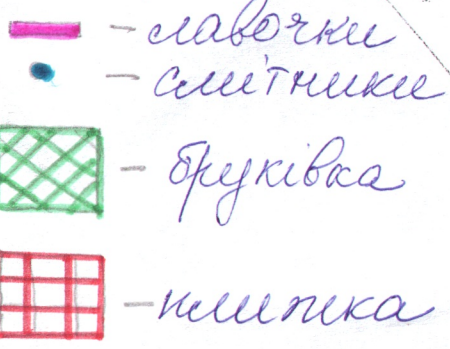 — лавочки
— смітники
— бруківка
— плитка